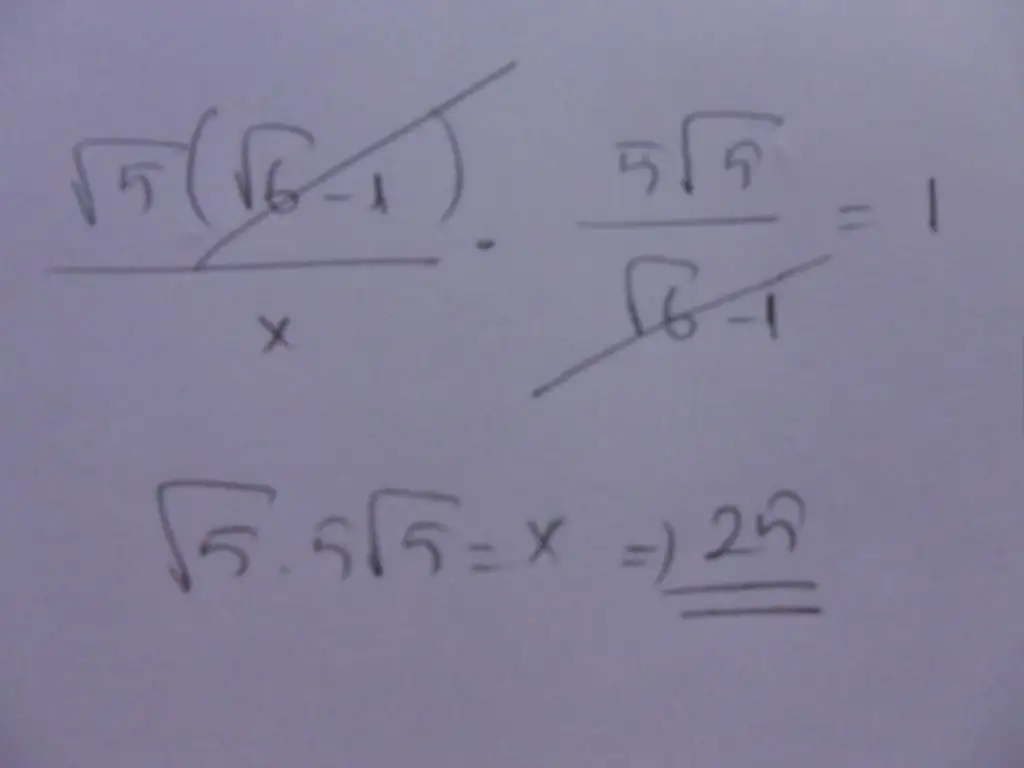 √5(√6-1)/x · 5√5/√6-1 = 1
√5 . 5√5 = x => 25